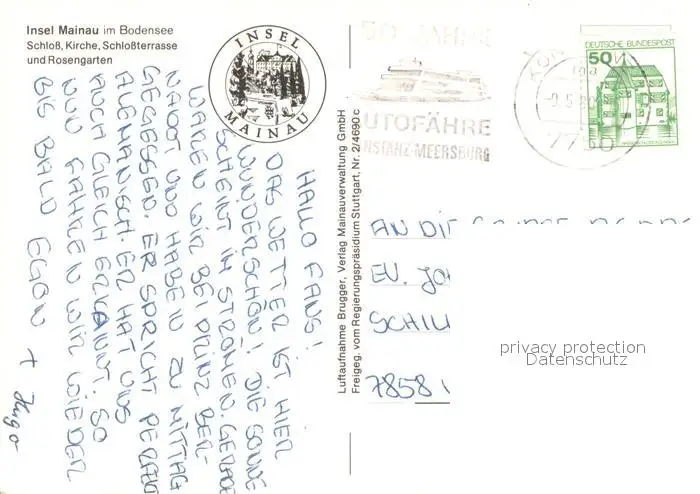 Insel Mainau im Bodensee
Schloß, Kirche, Schloßterrasse
und Rosengarten
INSEL
MAINAU
HALLO FANS!
DAS WETTER IST HIER
WUNDERSCHÖN! DIE SONNE
SCHEINT IM STRÖMEN. GERADE
WAREN WIR BEI PRINZ BER-
NADOT UND HABEN ZU MITTAG
GEGESSEN. ER SPRICHT PERFEKT
ALEMANISCH. ER HAT UNS
AUCH GLEICH ERKANNT. SO
NUN FAHREN WIR WIEDER
BIS BALD EGON + Hugo
Luftaufnahme Brugger, Verlag Mainauverwaltung GmbH
Freigeg. vom Regierungspräsidium Stuttgart, Nr. 2/4690 c
50 JAHRE
AUTOFÄHRE
KONSTANZ-MEERSBURG
7750
DEUTSCHE BUNDESPOST
50
AN DIE
EV. JO
SCHIL
7858
privacy protection
Datenschutz